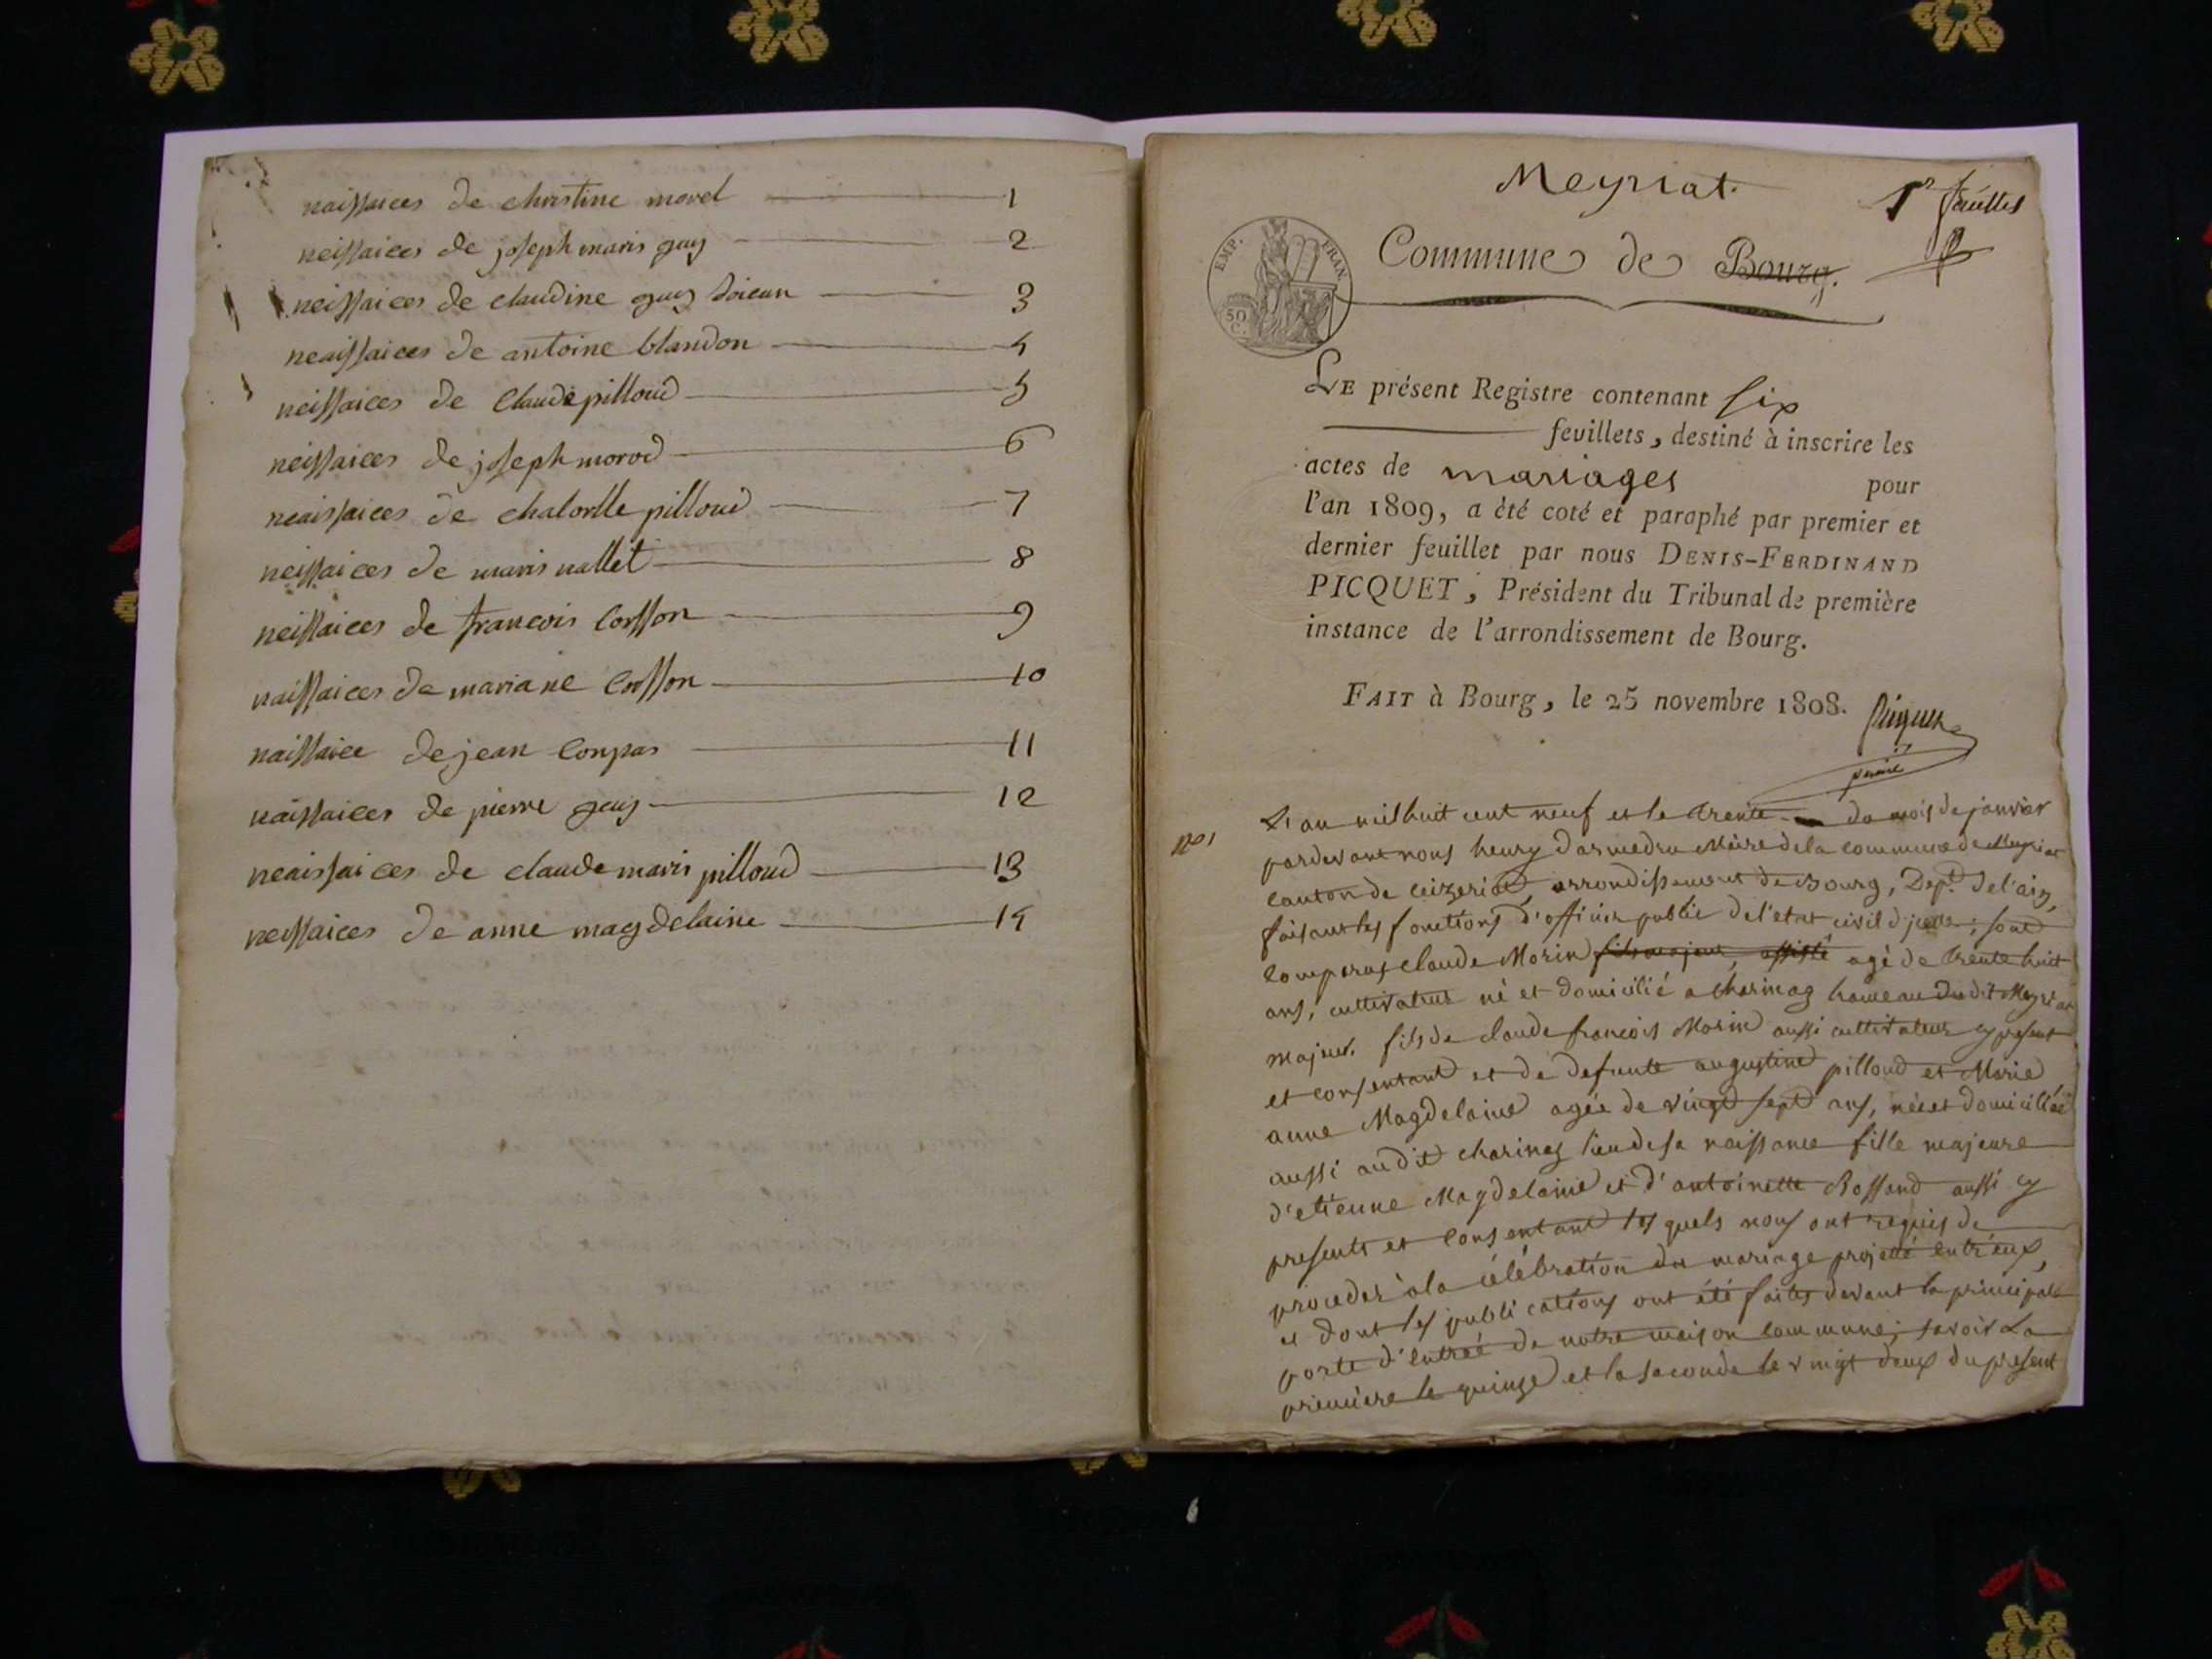 naissaices de christine morel 1
neissaices de joseph maris guy 2
neissaices de claudine guy 3
neaissaices de antoine blandon 4
neissaices de Claude pilloud 5
neissaices de joseph morod 6
neaissaices de chalorlle pilloud 7
neissaices de maris vallet 8
neissaices de francois Cosson 9
naissaices de mariane Cosson 10
naissaice de jean Conpas 11
naissaices de pierre guy 12
neaissaices de claude maris pilloud 13
neissaices de anne magdelaine 14
Meyriat.
1r feuillet
EMP. FRAN
50 C.
Commune de Bourg.
LE présent Registre contenant six
feuillets, destiné à inscrire les
actes de mariages pour
l'an 1809, a été coté et paraphé par premier et
dernier feuillet par nous DENIS-FERDINAND
PICQUET, Président du Tribunal de première
instance de l'arrondissement de Bourg.
FAIT à Bourg, le 25 novembre 1808.
Picquet
No 1
L'an mil huit cent neuf et le trente du mois de janvier
pardevant nous henry Maire de la commune de Meyriat
canton de Ceizeriat, arrondissement de Bourg, Dept. de l'ain,
faisant les fonctions d'officier public de l'etat civil d'jcelle; sont
comparus claude Morin fils majeur, assisté agé de trente huit
ans, cultivateur né et domicilié a charinaz hameau dudit Meyriat
majeur. fils de claude françois Morin aussi cultivateur cy present
et consentant et de defunte augustine pilloud et Marie
anne Magdelaine agée de vingt sept ans, née et domiciliée
aussi audit charinaz lieu de sa naissance fille majeure
d'etienne Magdelaine et d'antoinette Bossand aussi cy
presents et consentant lesquels nous ont requis de
proceder à la célébration du mariage projetté entr'eux,
et dont les publications ont été faites devant la principale
porte d'entrée de notre maison commune; savoir La
premiere le quinze et la seconde le vingt deux du present